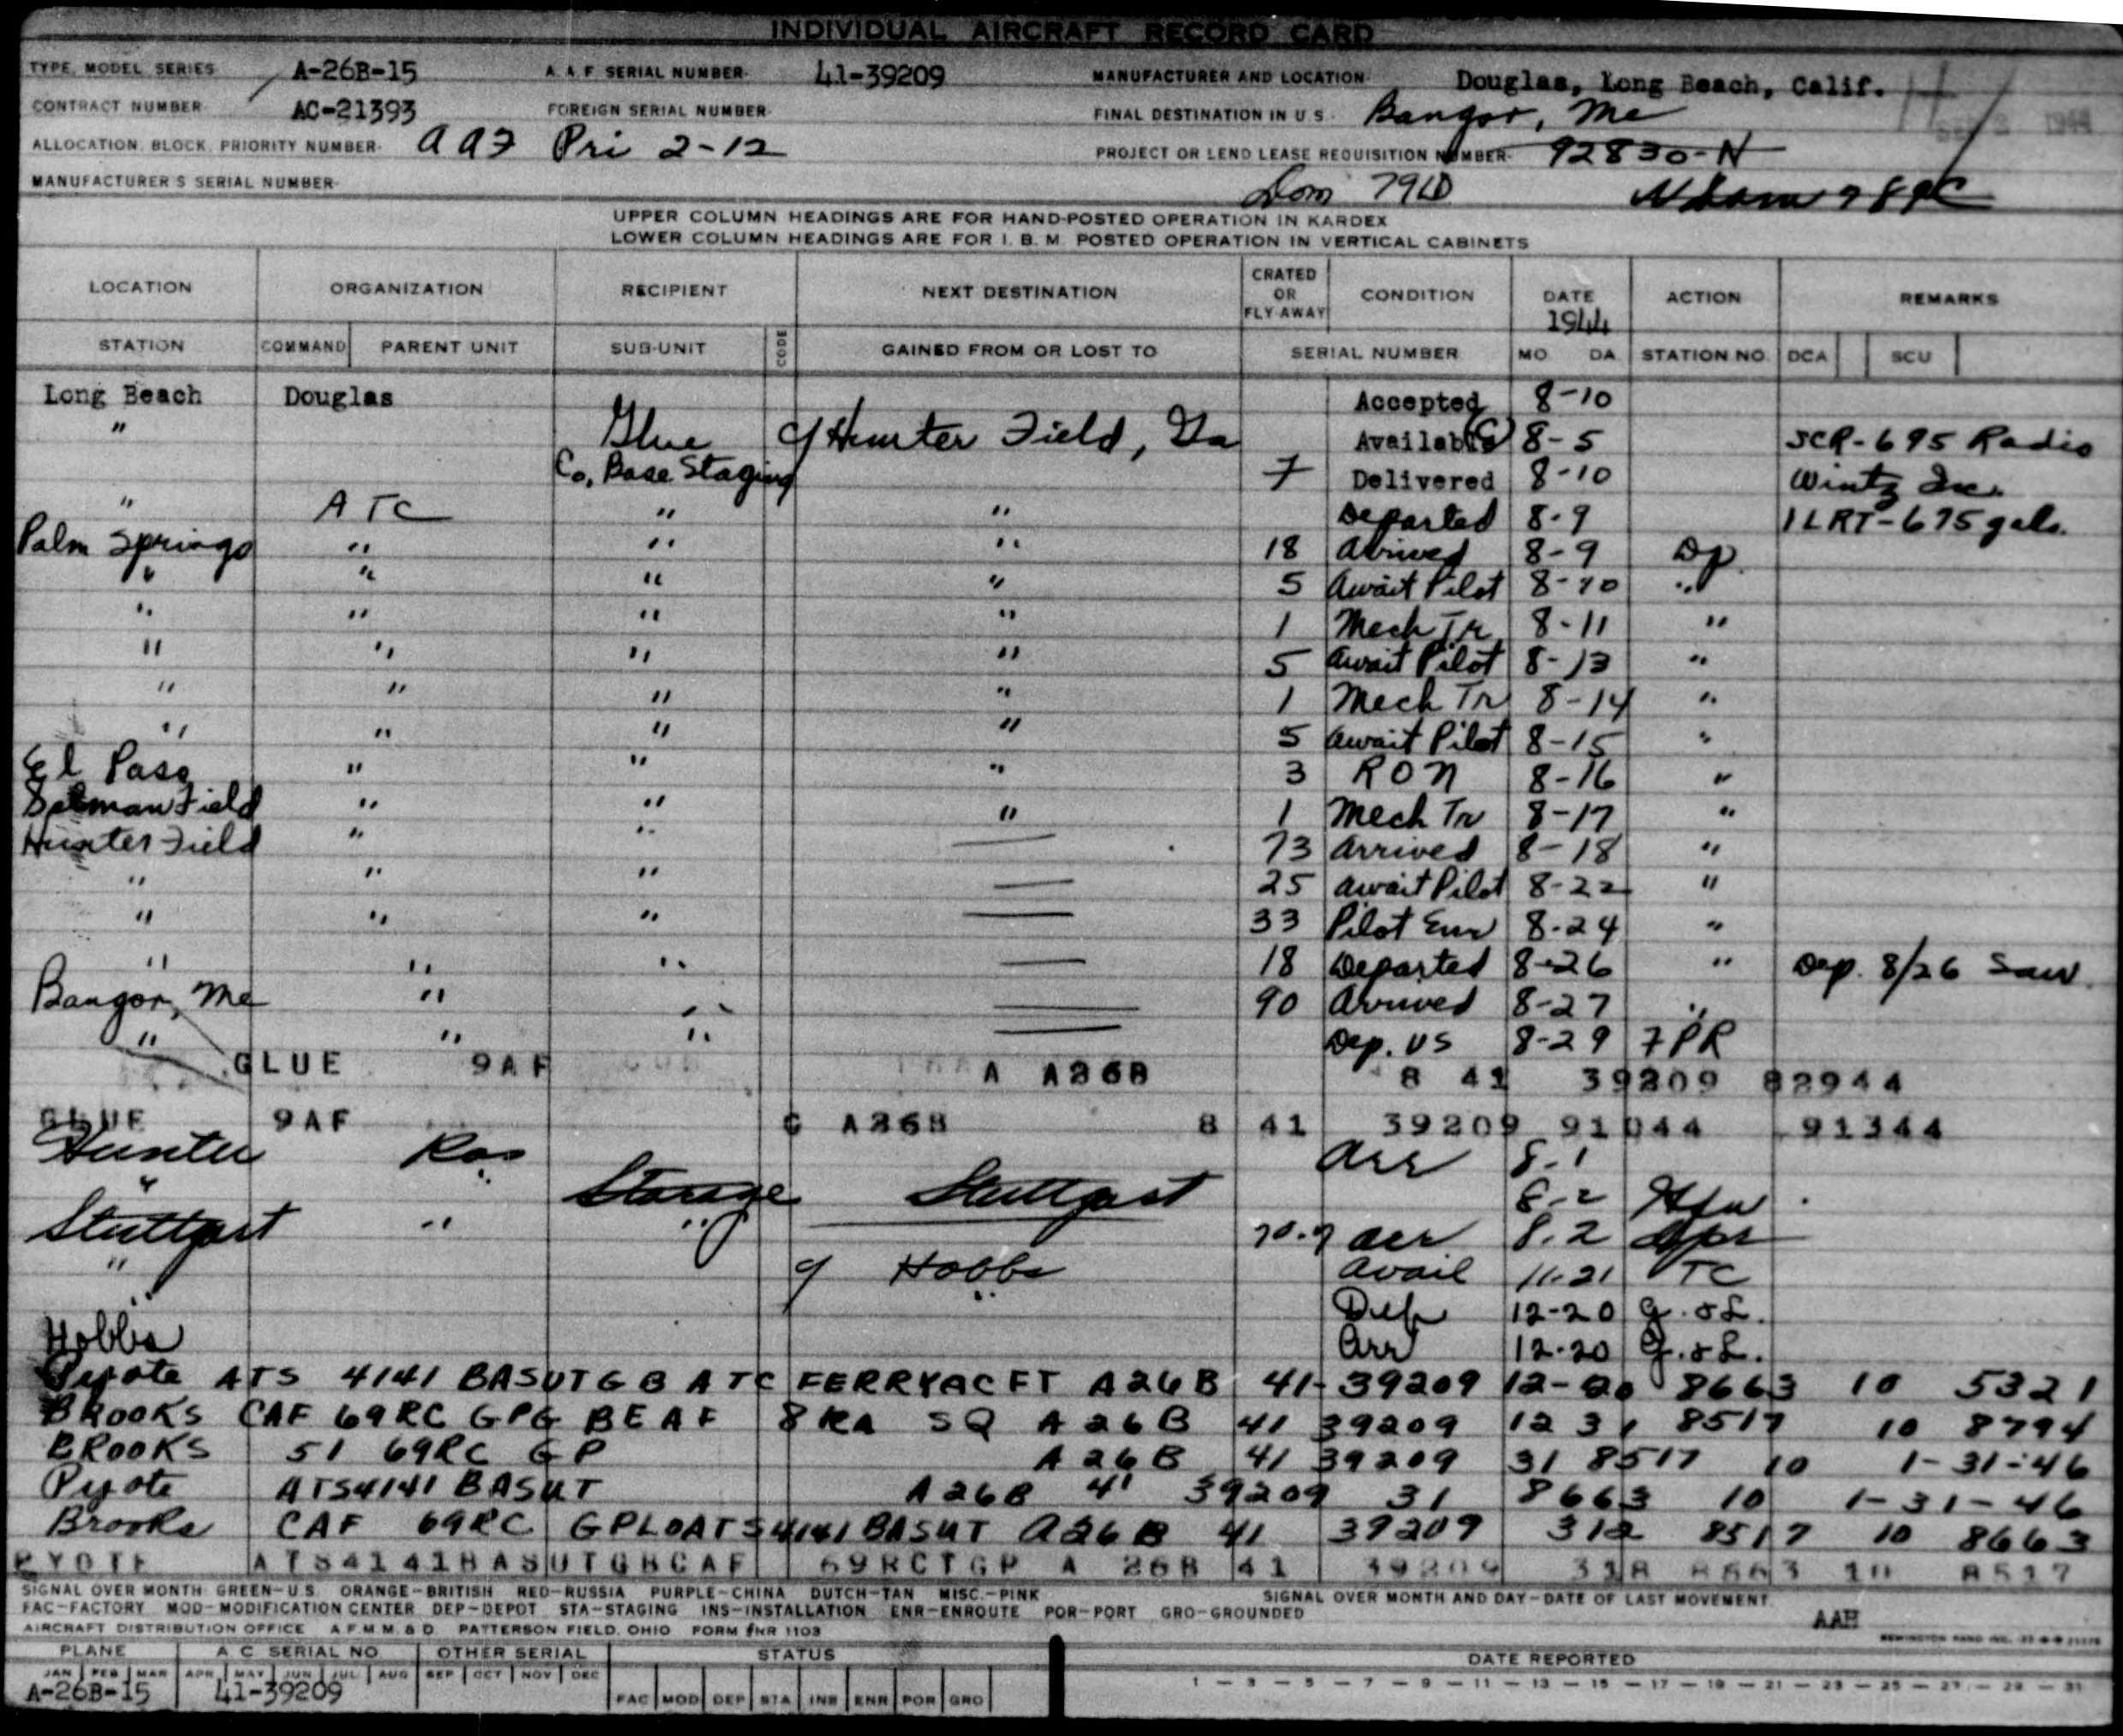 INDIVIDUAL AIRCRAFT RECORD CARD
TYPE, MODEL SERIES A-26B-15 A. A. F. SERIAL NUMBER- 41-39209 MANUFACTURER AND LOCATION- Douglas, Long Beach, Calif.
CONTRACT NUMBER- AC-21393 FOREIGN SERIAL NUMBER- FINAL DESTINATION IN U S- Bangor, Me 1944
ALLOCATION, BLOCK, PRIORITY NUMBER- AAF Pri 2-12 PROJECT OR LEND LEASE REQUISITION NUMBER- 92830-N
MANUFACTURER'S SERIAL NUMBER-
UPPER COLUMN HEADINGS ARE FOR HAND-POSTED OPERATION IN KARDEX
LOWER COLUMN HEADINGS ARE FOR I. B. M. POSTED OPERATION IN VERTICAL CABINETS
LOCATION ORGANIZATION RECIPIENT NEXT DESTINATION CRATED OR FLY-AWAY CONDITION DATE 1944 ACTION REMARKS
STATION COMMAND PARENT UNIT SUB-UNIT CODE GAINED FROM OR LOST TO SERIAL NUMBER MO. DA. STATION NO. DCA SCU
Long Beach Douglas Accepted 8-10
" Glue Hunter Field, Ga Available 8-5 SCR-695 Radio
Co, Base Staging 7 Delivered 8-10 Wintz Inc.
" ATC " " Departed 8-9 1 LRT-675 gals.
Palm Springs " " " 18 Arrived 8-9 Dp.
" " " " 5 Await Pilot 8-10 "
" " " " 1 Mech Tr 8-11 "
" " " " 5 Await Pilot 8-13 "
" " " " 1 Mech Tr 8-14 "
" " " " 5 Await Pilot 8-15 "
El Paso " " " 3 RON 8-16 "
Selman Field " " " 1 Mech Tr 8-17 "
Hunter Field " " — 73 Arrived 8-18 "
" " " — 25 Await Pilot 8-22 "
" " " — 33 Pilot Enr 8-24 "
" " " — 18 Departed 8-26 " Dep. 8/26 Sav.
Bangor, Me " " — 90 Arrived 8-27 "
" " " — Dep. US 8-29 7PR
GLUE 9AF A A26B 8 41 39209 82944
GLUE 9AF G A26B 8 41 39209 91044 91344
Hunter Arr 8-1
" " Storage Stuttgart 8-2
Stuttgart " " Arr 8.2
" Hobbs Avail 11-21 TC
" " Dep 12-20 G.&L.
Hobbs Arr 12-20 G.&L.
Pyote ATS 4141 BASUTGB ATC FERRYACFT A26B 41-39209 12-20 8663 10 5321
BROOKS CAF 69RC GPG BEAF 8 Ra SQ A26B 41 39209 12 31 8517 10 8794
BROOKS 51 69RC GP A26B 41 39209 31 8517 10 1-31-46
Pyote ATS4141 BASUT A26B 41 39209 31 8663 10 1-31-46
Brooks CAF 69RC GPLOATS4141BASUT A26B 41 39209 312 8517 10 8663
PYOTE ATS4141BASUTGBCAF 69RCTGP A 26B 41 39209 318 8663 10 8517
SIGNAL OVER MONTH: GREEN-U.S. ORANGE-BRITISH RED-RUSSIA PURPLE-CHINA DUTCH-TAN MISC.-PINK SIGNAL OVER MONTH AND DAY-DATE OF LAST MOVEMENT.
FAC-FACTORY MOD-MODIFICATION CENTER DEP-DEPOT STA-STAGING INS-INSTALLATION ENR-ENROUTE POR-PORT GRO-GROUNDED AAH
AIRCRAFT DISTRIBUTION OFFICE A.F.M.M.& D. PATTERSON FIELD, OHIO FORM #NR 1103
PLANE A C SERIAL NO. OTHER SERIAL STATUS DATE REPORTED
JAN FEB MAR APR MAY JUN JUL AUG SEP OCT NOV DEC
A-26B-15 41-39209 FAC MOD DEP STA INS ENR POR GRO 1 — 3 — 5 — 7 — 9 — 11 — 13 — 15 — 17 — 19 — 21 — 23 — 25 — 27 — 29 — 31